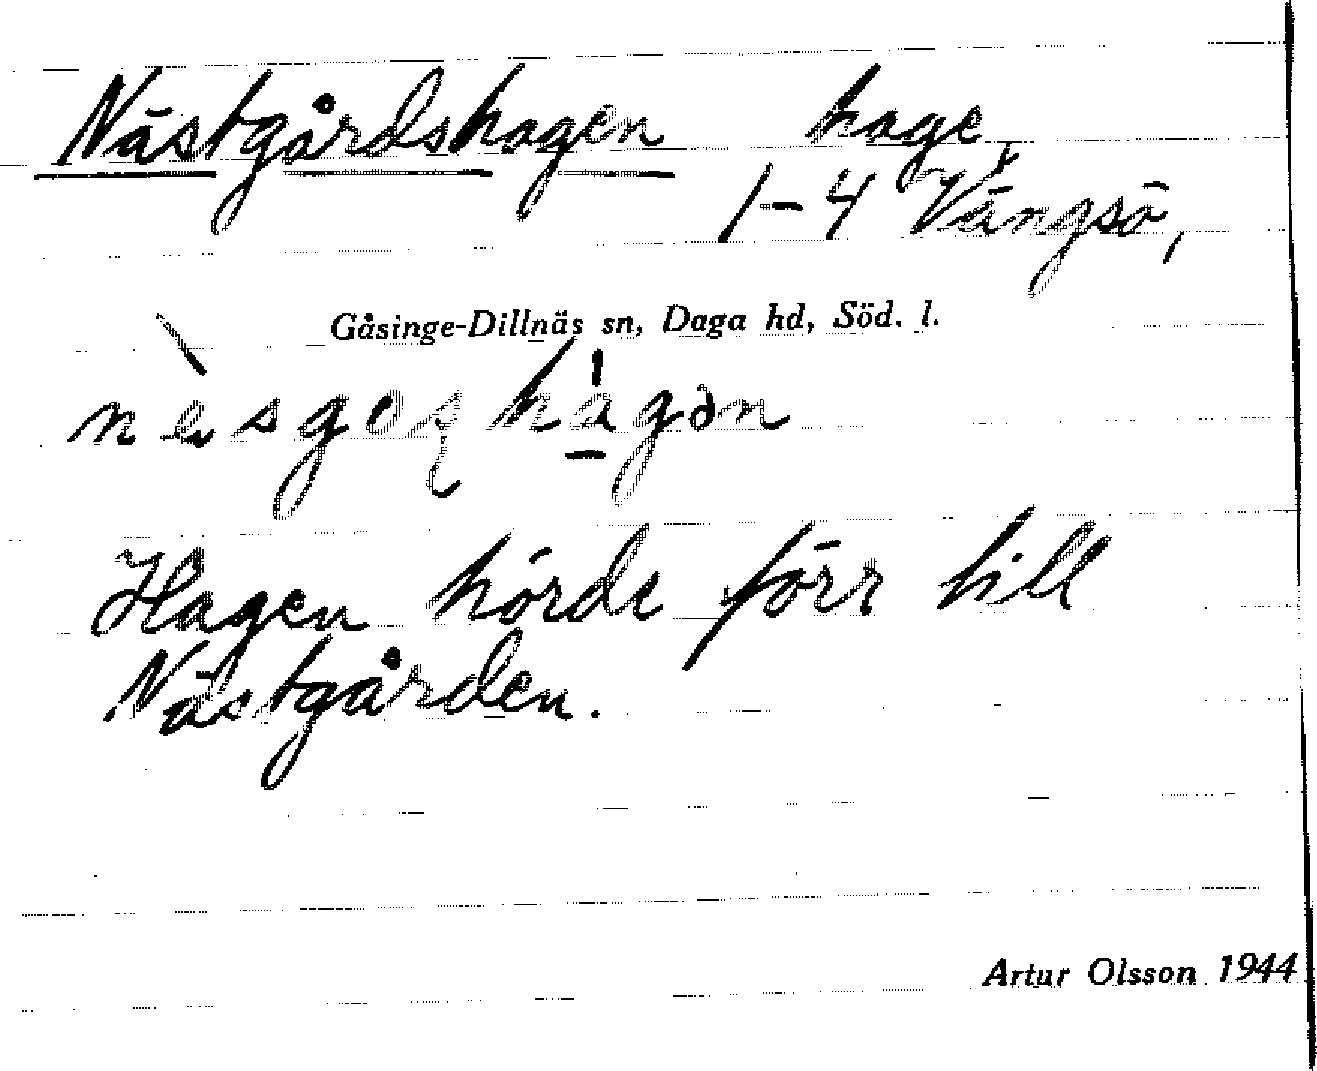 Nästgårdshagen hage,
1-4 Vängsö,
Gåsinge-Dillnäs sn, Daga hd, Söd. l.
Hagen hörde förr till
Nästgården.
Artur Olsson 1944